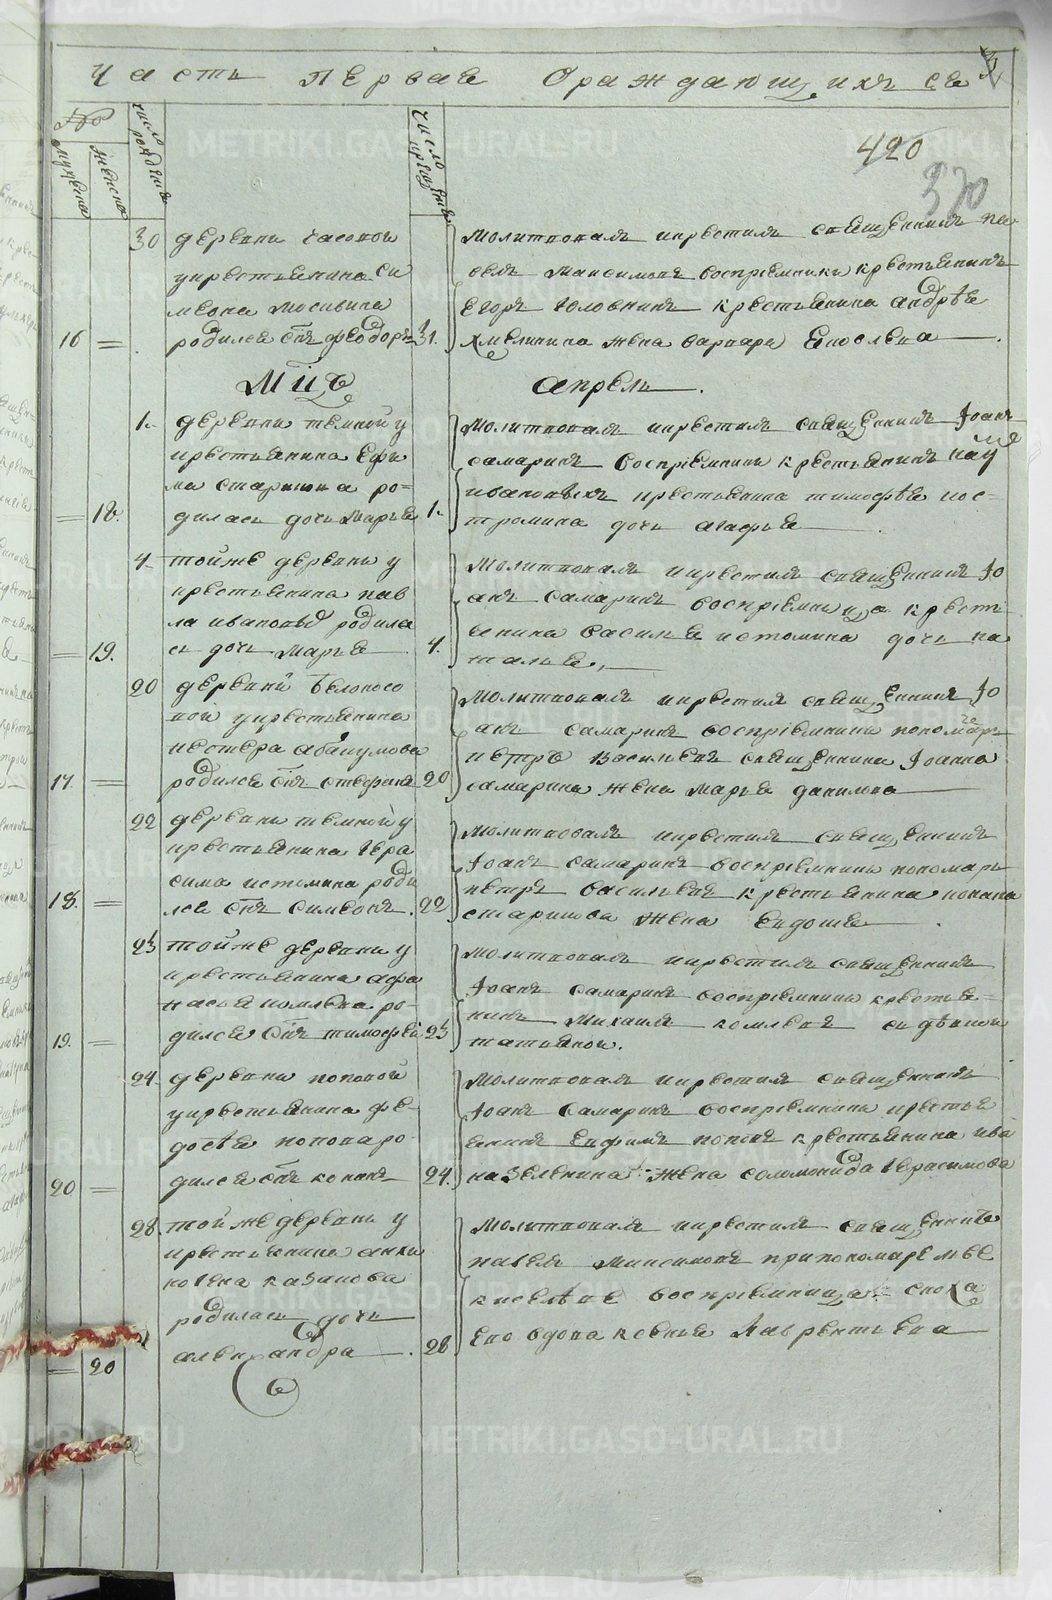 METRIKI.GASO-URAL.RU
Часть первая О раждающихся
420
370
№
мужеска
женска
число рождения
число крещения
30 деревни Часовой
у крестьянина Си
меона Мосивина
16 = родился сынъ Феодоръ 31.
Молитвовалъ и крестилъ священникъ Па
велъ Максимовъ восприемники крестьянинъ
Егоръ Головнинъ крестьянина Андрѣя
Хмелинина жена Варвара
Мц̃ъ Апрель
1. деревни Темной у
крестьянина Ефи
ма Старикова ро=
= 18. дилась дочь Марья 1.
Молитвовалъ и крестилъ священникъ Іоанъ
Самаринъ восприемники крестьянинъ
Ивановыхъ крестьянина Тимофѣя Кос=
тромина дочь Агафья
4. тойже деревни у
крестьянина Пав
ла Ивановыхъ родила
= 19. сь дочь Марья 4.
Молитвовалъ и крестилъ священникъ Іо
анъ Самаринъ восприемница кресть
янина Василья Истомина дочь На
талья,
20 деревни Белоносо
вой у крестьянина
Нестера Абакумова
17. = родился сынъ Стефанъ 20
Молитвовалъ и крестилъ священникъ Іо
анъ Самаринъ восприемники пономарь
Петръ Васильевъ священника Іоанна
Самарина жена Марья Данилова
22 деревни Темной у
крестьянина Гера
сима Истомина роди
18. = лся сынъ Симеонъ. 22
Молитвовалъ и крестилъ священникъ
Іоанъ Самаринъ восприемники пономарь
Петръ Васильевъ крестьянина Конана
Старикова жена Евдокия
23 тойже деревни у
крестьянина Афа
насья Комлева ро=
19. = дился сынъ Тимофей 23
Молитвовалъ и крестилъ священникъ
Іоанъ Самаринъ восприемники крестья=
нинъ Михаилъ Комлевъ съ дѣвкой
Татьяной.
24. деревни Поповой
у крестьянина Фе=
досѣя Попова ро=
20 = дился сынъ Кононъ 24.
Молитвовалъ и крестилъ священникъ
Іоанъ Самаринъ восприемники крестья
янинъ Ефимъ Поповъ крестьянина Ива
на Зеленина жена Соломонида Герасимова
28. той же деревни у
крестьянина
Казакова
родилась дочь
= 20 Александра 28
Молитвовалъ и крестилъ священникъ
Павелъ Максимовъ при пономаре
восприемница
вдова Ксенья Лаврентьева
METRIKI.GASO-URAL.RU